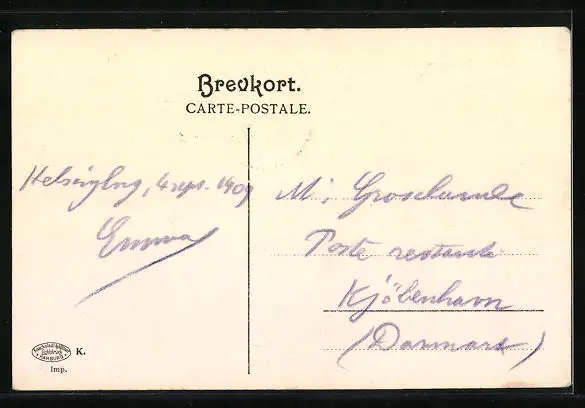 Brevkort.
CARTE-POSTALE.
Helseiglng, 4 sept. 1909
Emma
M:
Poste restante
Kjöbenhavn
(Danmark)
HAMBURG
K.
Imp.